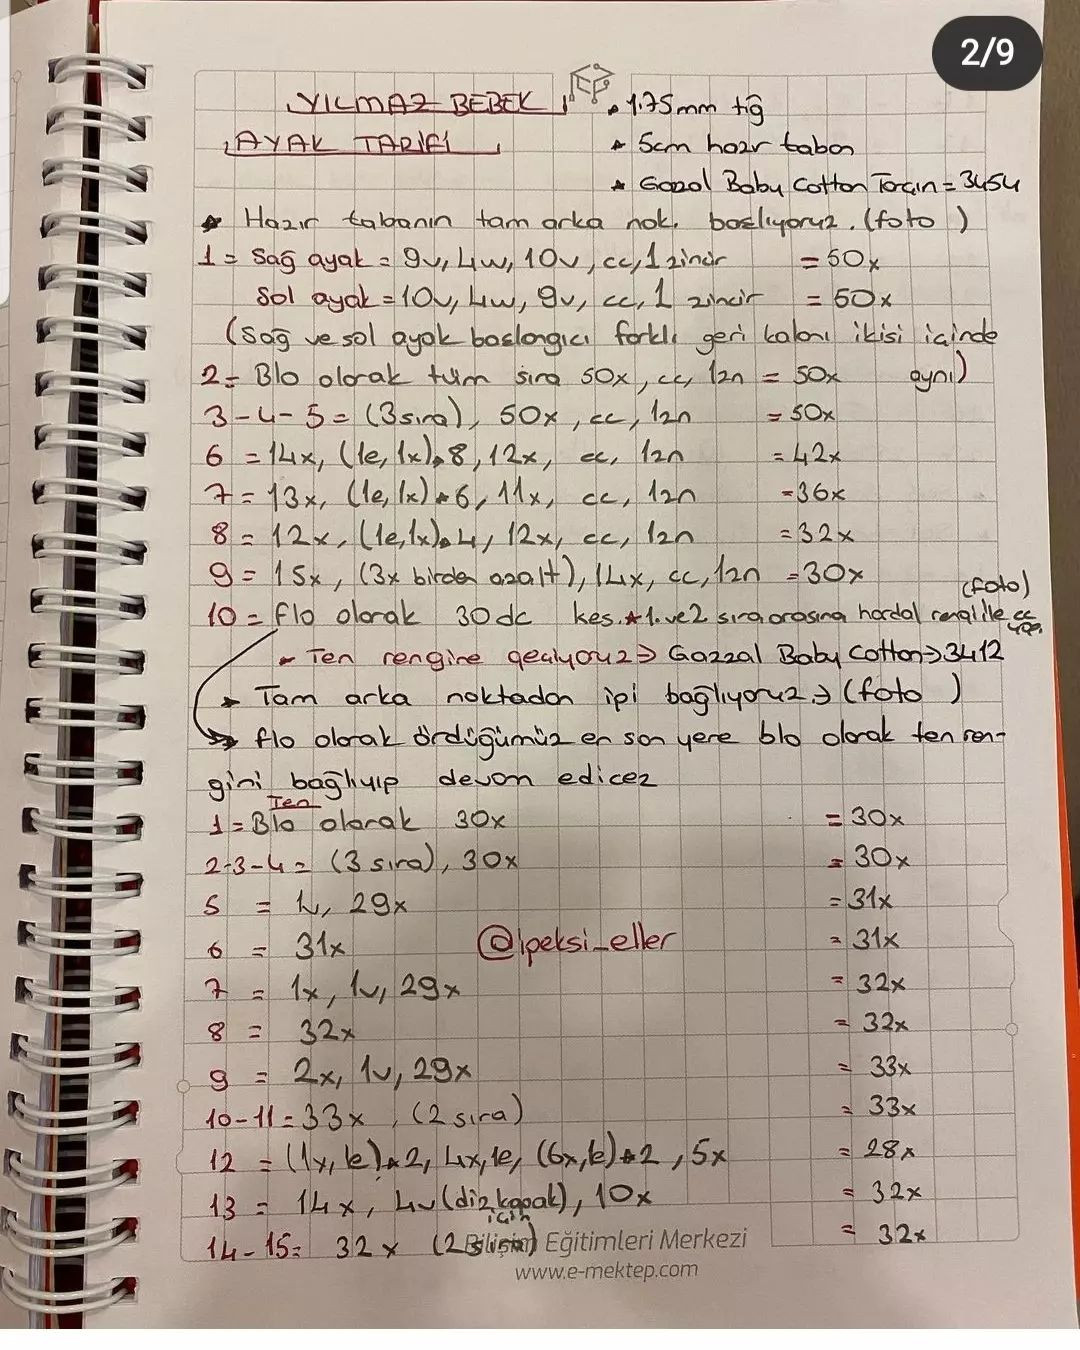 2/9
YILMAZ BEBEK
AYAK TARİFİ
• 1.75mm tığ
* 5cm hazır taban
* Gazal Baby Cotton Tarçın = 3454
* Hazır tabanın tam arka nok. başlıyoruz. (foto )
1 = Sağ ayak = 9v, 4w, 10v, cc, 1 zincir = 50x
Sol ayak = 10v, 4w, 9v, cc, 1 zincir = 50x
(Sağ ve sol ayak başlangıcı farklı geri kalanı ikisi içinde aynı)
2 = Blo olarak tüm sıra 50x, cc, 1zn = 50x
3-4-5 = (3 sıra), 50x, cc, 1zn = 50x
6 = 14x, (1e, 1x)*8, 12x, cc, 1zn = 42x
7 = 13x, (1e, 1x)*6, 11x, cc, 1zn = 36x
8 = 12x, (1e, 1x)*4, 12x, cc, 1zn = 32x
9 = 15x, (3x birden azalt), 14x, cc, 1zn = 30x
(foto)
10 = flo olarak 30dc kes. * 1. ve 2 sıra arasına hardal rengi ile cc yap.
* Ten rengine geçiyoruz => Gazzal Baby Cotton -> 3412
* Tam arka noktadan ipi bağlıyoruz -> (foto )
flo olarak ördüğümüz en son yere blo olarak ten ren-
gini bağlıyıp devam edicez
Ten
1 = Blo olarak 30x = 30x
2-3-4 = (3 sıra), 30x = 30x
5 = 1v, 29x = 31x
6 = 31x = 31x
@ipeksi_eller
7 = 1x, 1v, 29x = 32x
8 = 32x = 32x
9 = 2x, 1v, 29x = 33x
10-11 = 33x, (2 sıra) = 33x
12 = (1x, 1e)*2, 4x, 1e, (6x, 1e)*2, 5x = 28x
13 = 14x, 4v (diz kapak için), 10x = 32x
14-15 = 32x (2 sıra) = 32x
Bilişim Eğitimleri Merkezi
www.e-mektep.com